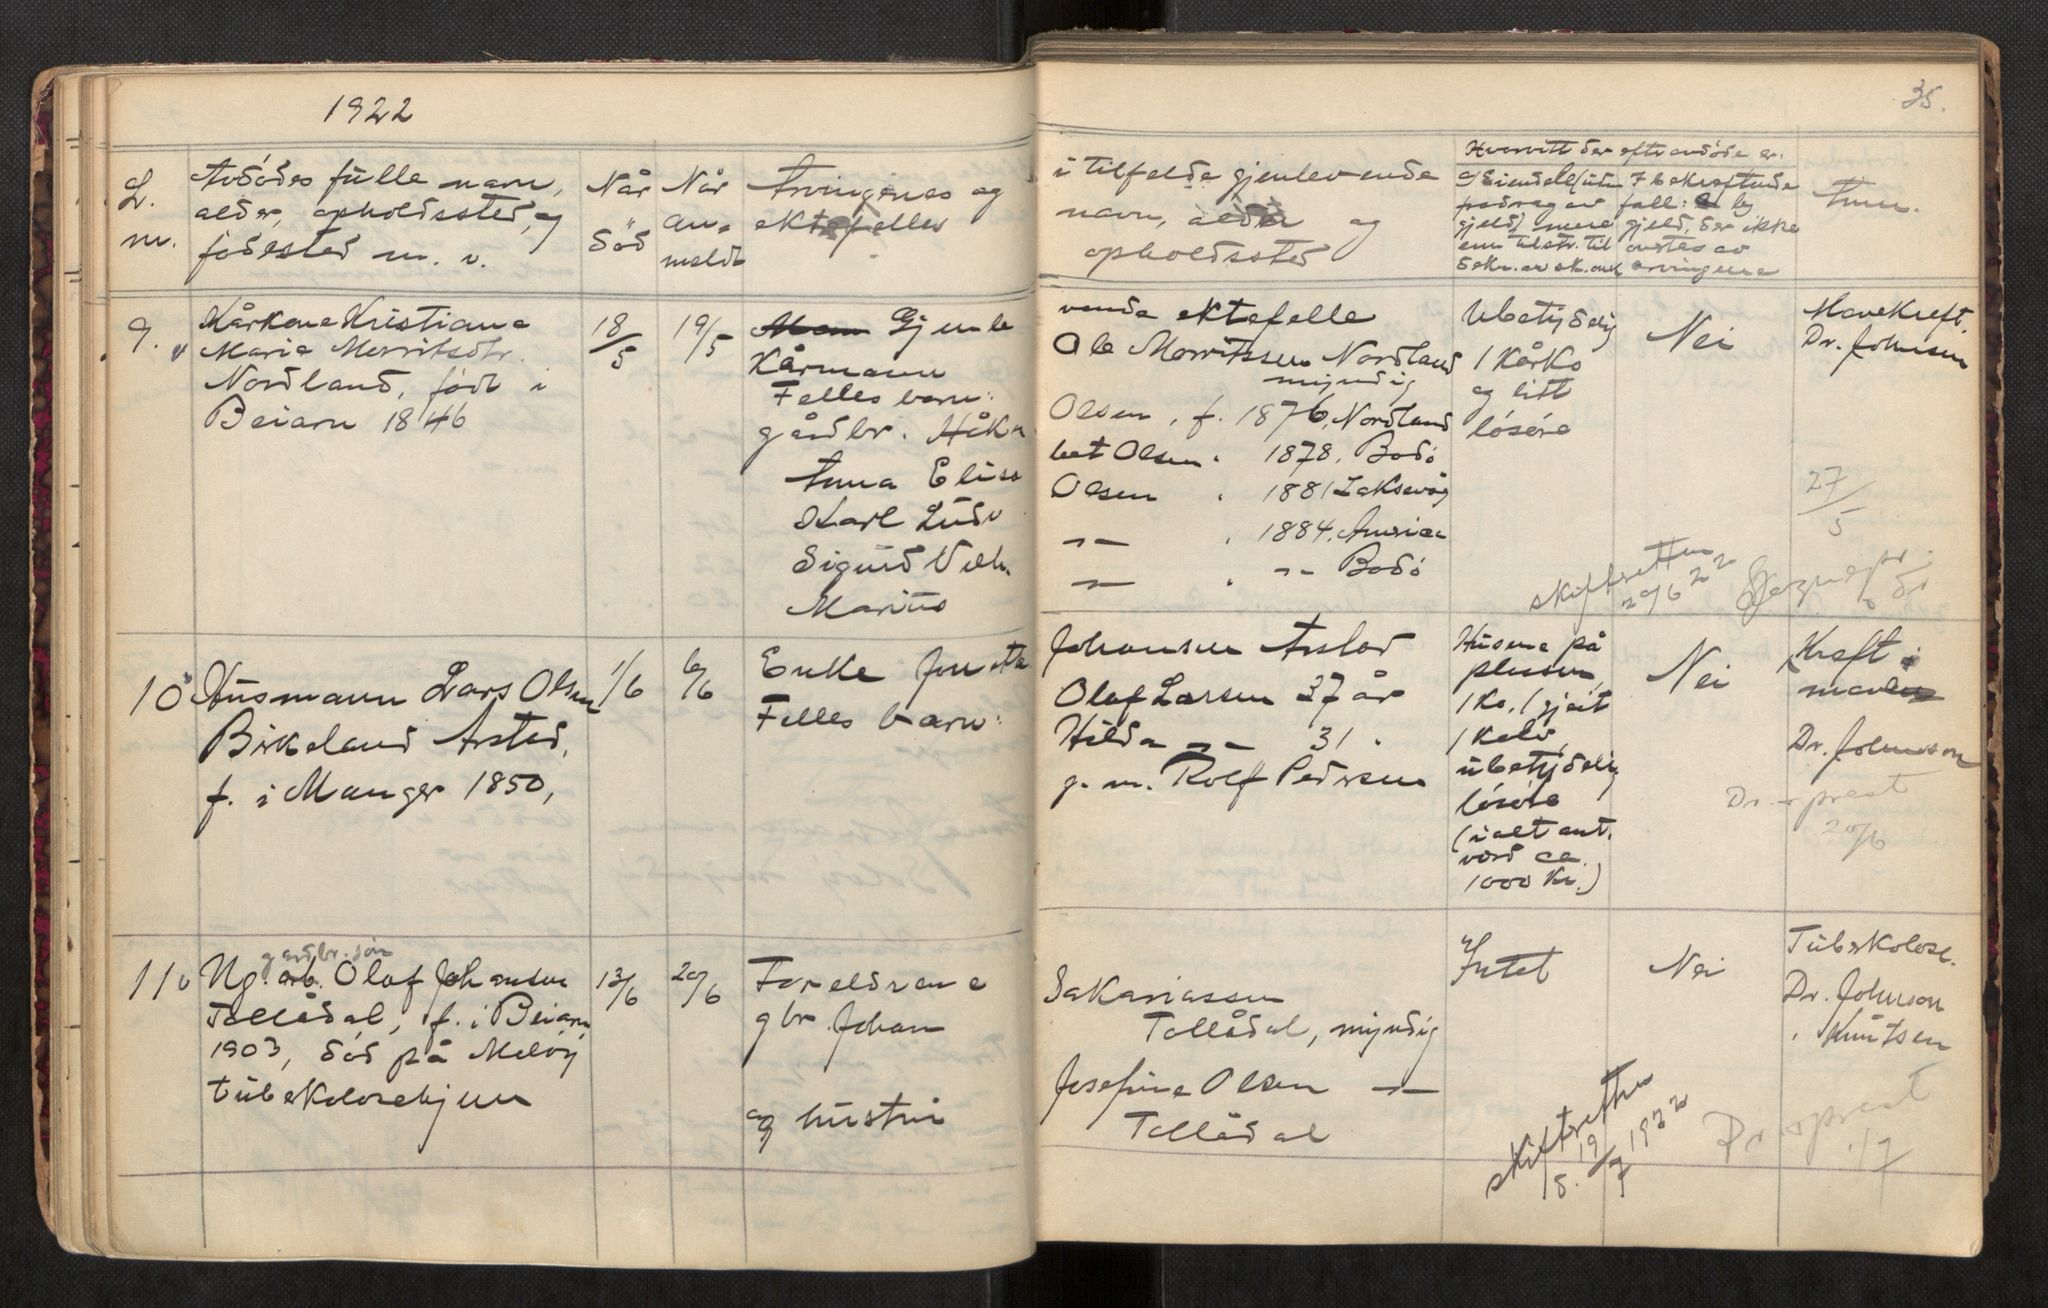 1922
L. nr.
Avdødes fulle navn,
alder, opholdssted, og
fødested m. v.
Når
død
Når
an-
meldt
Arvingenes og
ektefelles
9.
Kårkone Kristiane
Marie Morritsdtr.
Nordland, født i
Beiarn 1846
18/5
19/5
Gjenle
Kårmann
Felles barn:
gårdbr. Håkon
Anna Elisa
Karl Ludv
Sigurd Vilh.
Marius
10
Husmann Lars Olsen
Birkeland Arstad,
f. i Manger 1850,
1/6
6/6
Enke Jonetta
Felles barn:
11
gårdbr. søn
Ug. arb. Olaf Johansen
Tollådal, f. i Beiarn
1903, død på Meløy
tuberkulosehjem
13/6
20/6
Foreldrene
gbr. Johan
og hustru
35.
i tilfelde gjenlevende
navn, alder og
opholdssted
Hvorvitt der eftr avdøde er.
a) Eiendel (uten fradrag av gjeld) mere enn tilstr. til dekn. av sk. omk
I bekreftende fall: b) gjeld, der ikke ovrtas av arvingene
Anm.
vende ektefelle
Ole Morritssen Nordland
myndig
Olsen, f. 1876, Nordland
bet Olsen " 1878, Bodø
Olsen " 1881 Laksevåg
—"— " 1884, America
—"— " —"— Bodø
Ubetydelig
1 kårko
og litt
løsøre
Nei
Mavekreft.
Dr. Johnson
27/5
skifteretten
20/6 22
Johansen Arstad
Olaf Larsen 37 år
Hilda —"— 31 "
g. m. Rolf Pedersen
Husene på
plassen,
1 ko, 1 gjeit
1 kalv,
ubetydelig
løsøre
(i alt ant.
verd ca.
1000 kr.)
Nei
Kreft i
maven
Dr. Johnson
Dr. + prest
20/6
Sakariassen
Tollådal, myndig
Josefine Olsen —"—
Tollådal
Intet
Nei
Tuberkolose.
Dr. Johnson
" Knutsen
skifteretten
S. 19/7 1922
Dr. + prest
1/7